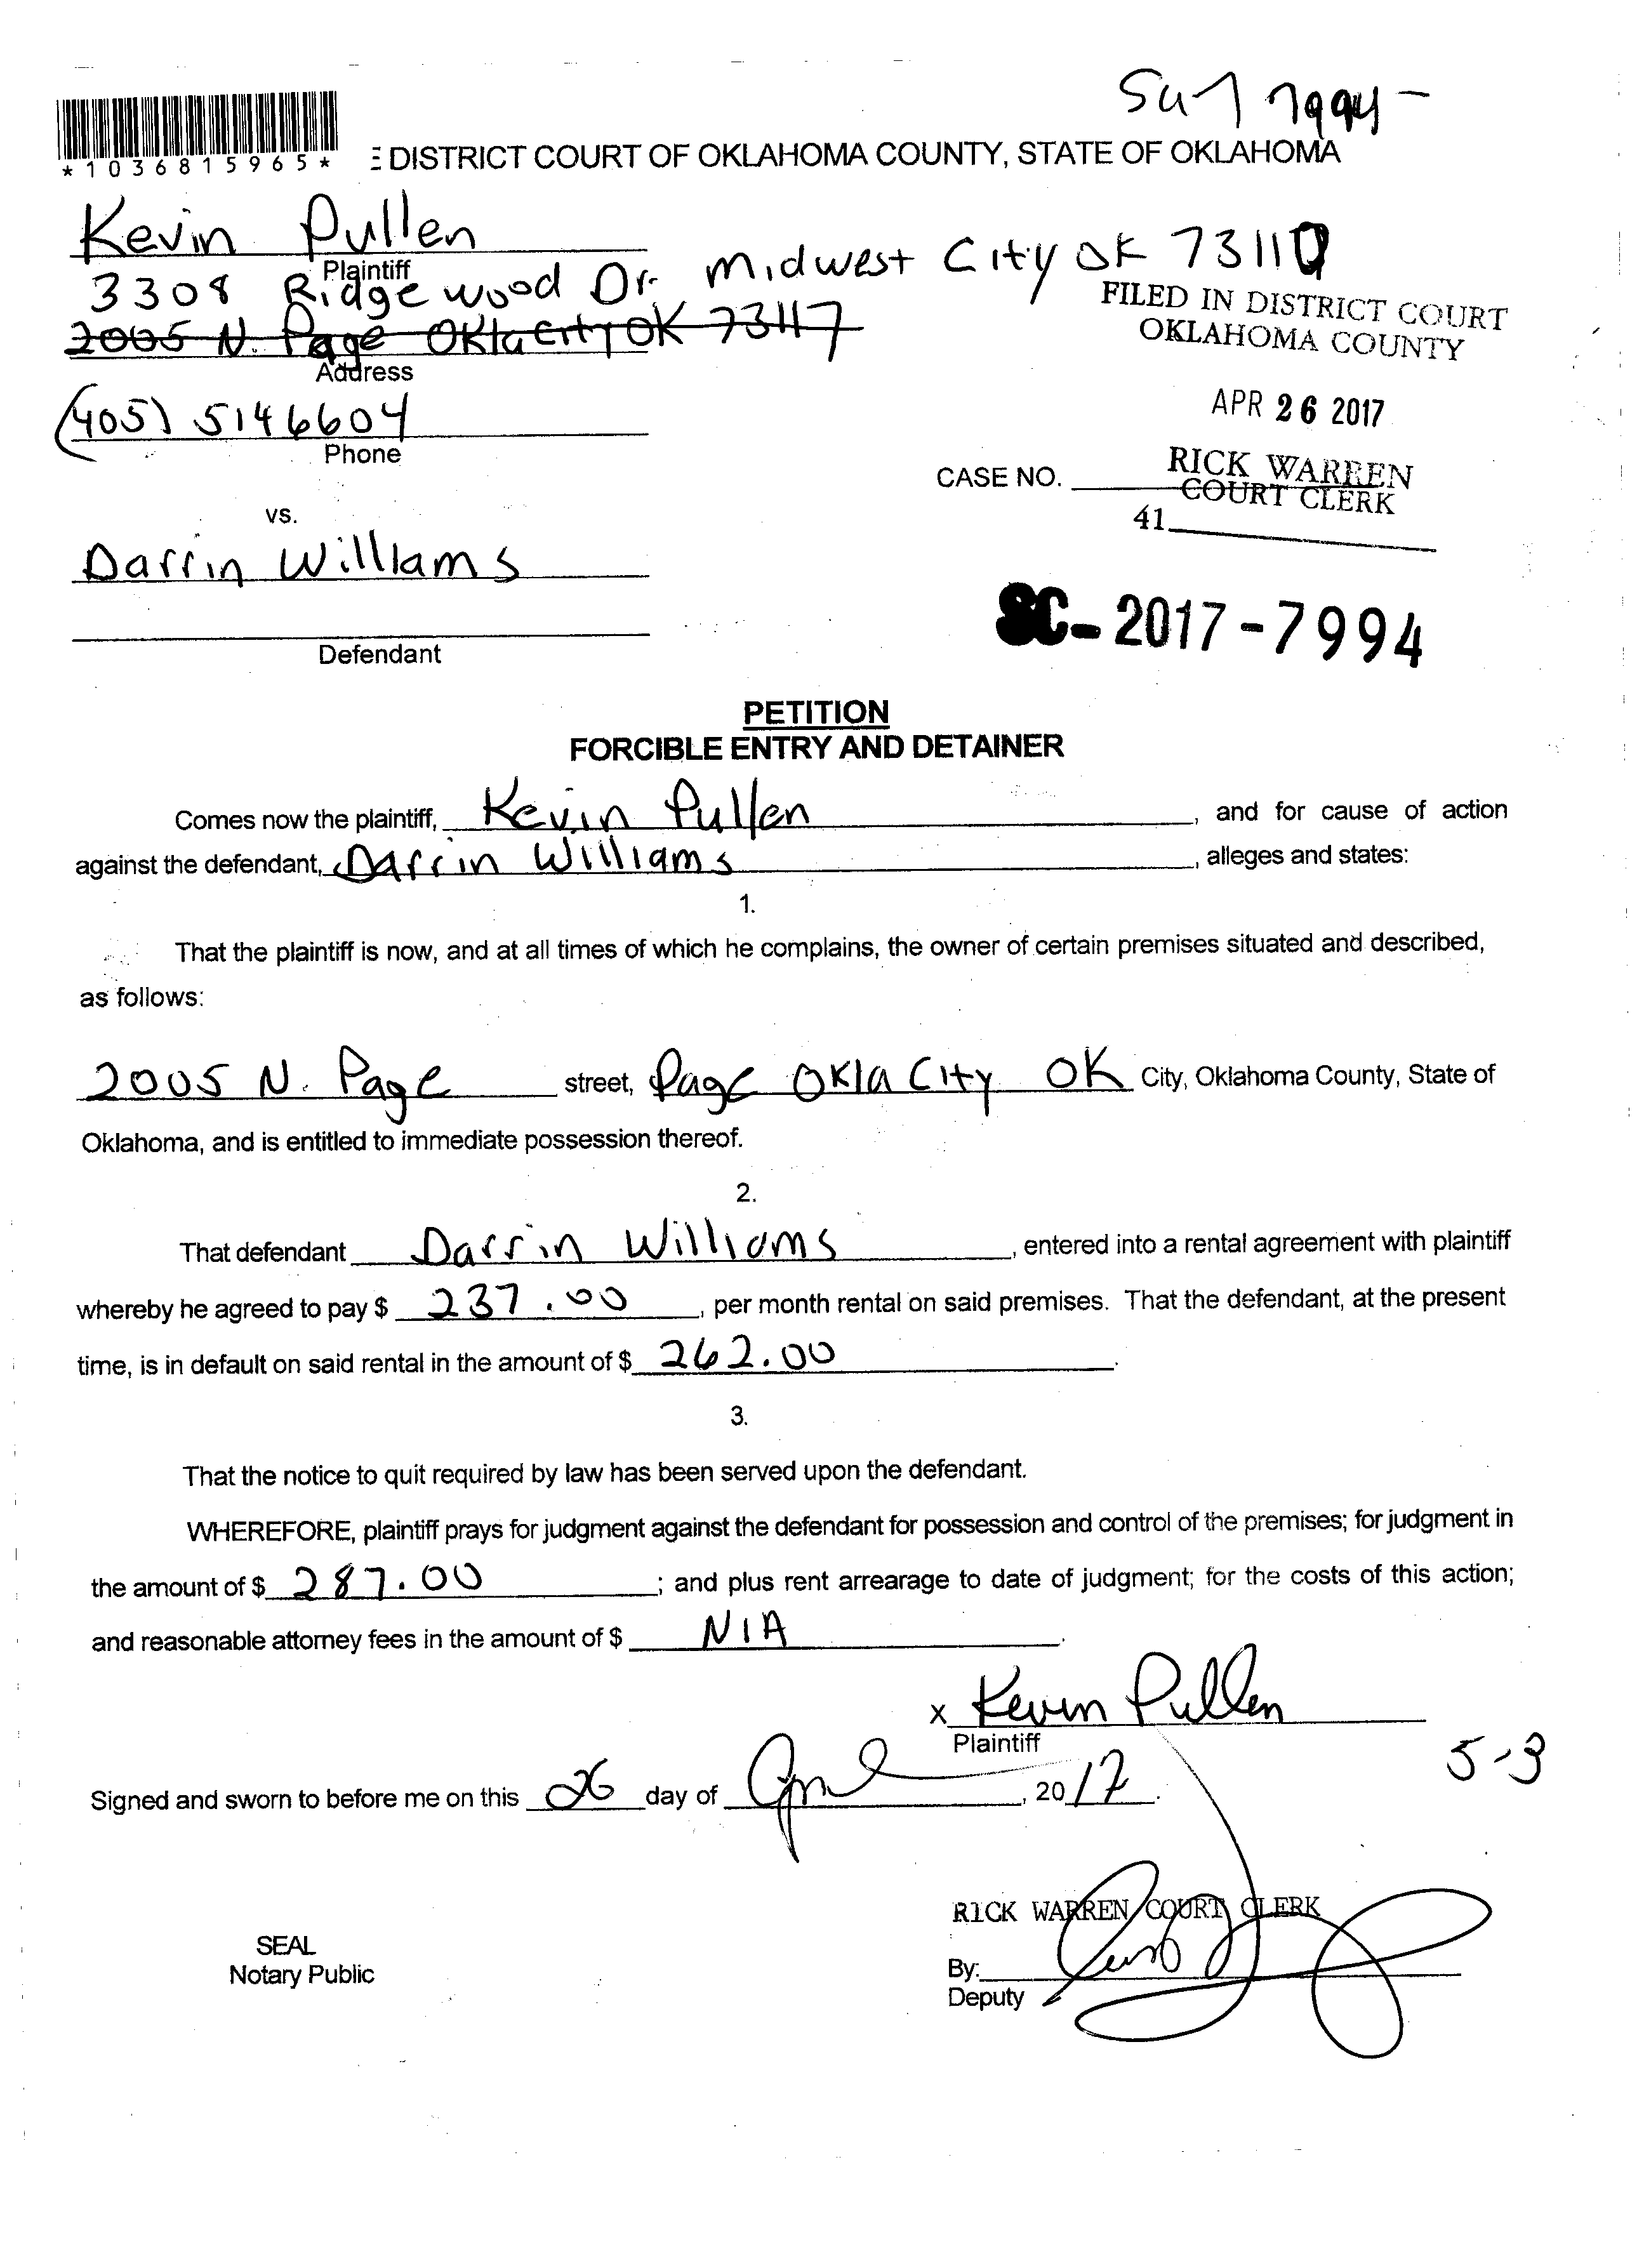 7994-
*1036815965*
DISTRICT COURT OF OKLAHOMA COUNTY, STATE OF OKLAHOMA
Kevin Pullen
Plaintiff
3308 Ridgewood Dr. Midwest City OK 73110
2005 N. Page Okla City OK 73117
Address
(405) 5146604
Phone
FILED IN DISTRICT COURT
OKLAHOMA COUNTY
APR 26 2017
RICK WARREN
COURT CLERK
CASE NO.
41
vs.
Darrin Williams
Defendant
SC-2017-7994
PETITION
FORCIBLE ENTRY AND DETAINER
Comes now the plaintiff, Kevin Pullen, and for cause of action
against the defendant, Darrin Williams, alleges and states:
1.
That the plaintiff is now, and at all times of which he complains, the owner of certain premises situated and described,
as follows:
2005 N. Page street, Page Okla City OK City, Oklahoma County, State of
Oklahoma, and is entitled to immediate possession thereof.
2.
That defendant Darrin Williams, entered into a rental agreement with plaintiff
whereby he agreed to pay $ 237.00, per month rental on said premises. That the defendant, at the present
time, is in default on said rental in the amount of $ 262.00.
3.
That the notice to quit required by law has been served upon the defendant.
WHEREFORE, plaintiff prays for judgment against the defendant for possession and control of the premises; for judgment in
the amount of $ 287.00; and plus rent arrearage to date of judgment; for the costs of this action;
and reasonable attorney fees in the amount of $ N/A.
x Kevin Pullen
Plaintiff
5-3
Signed and sworn to before me on this 26 day of April, 2017.
RICK WARREN COURT CLERK
SEAL
Notary Public
By:
Deputy